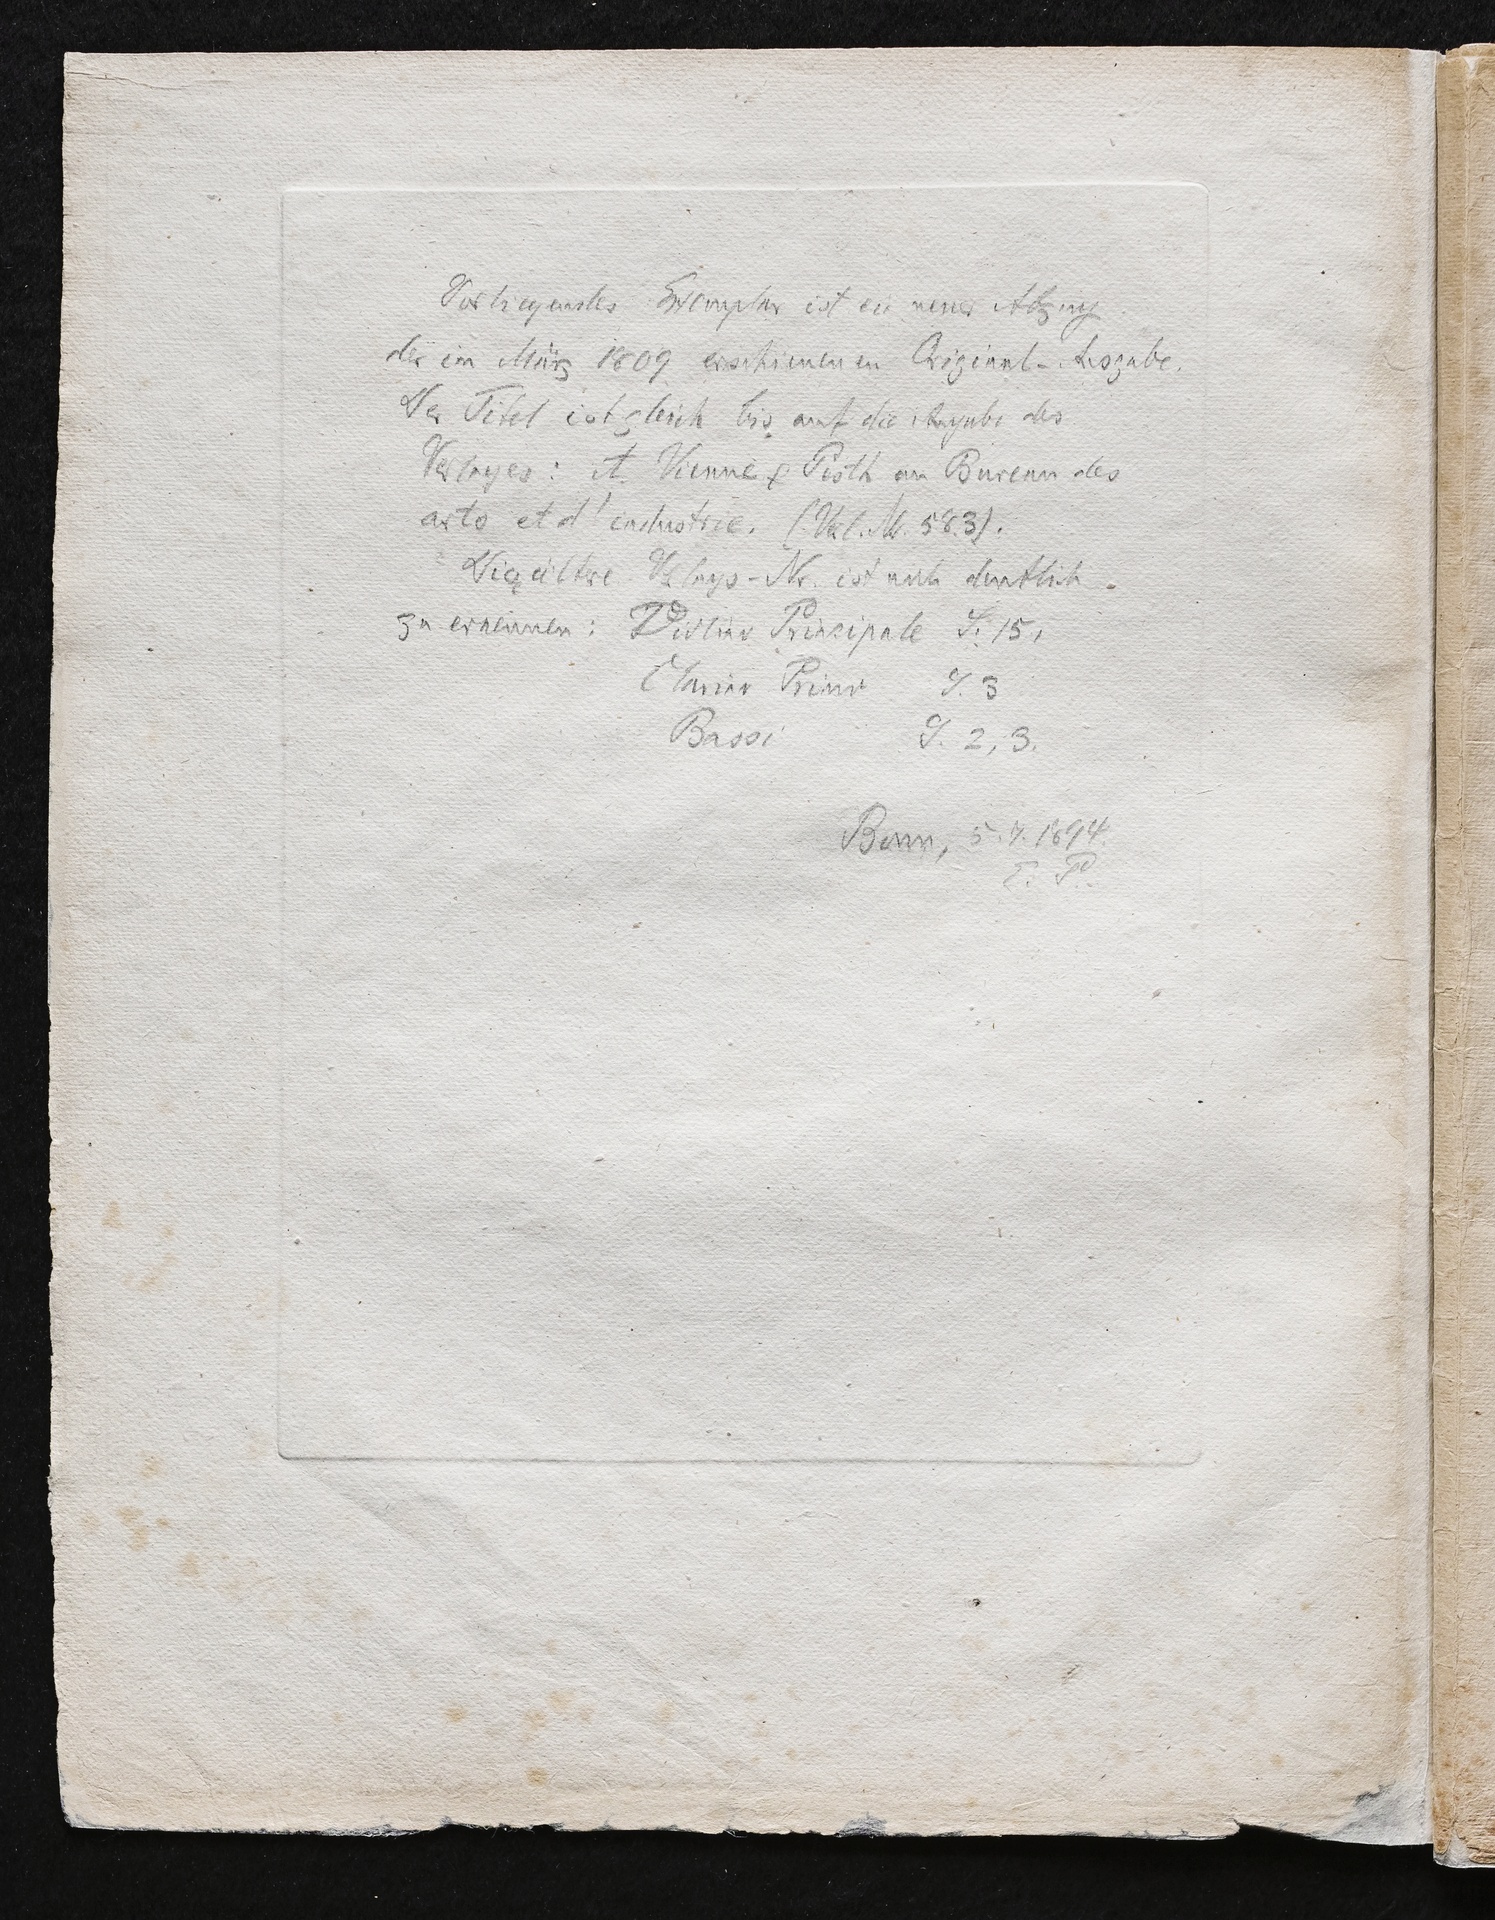 Vorliegendes Exemplar ist ein neuer Abzug
der im März 1809 erschienenen Original-Ausgabe.
Der Titel ist gleich bis auf die Angabe des
Verlages: A Vienne & Pesth au Bureau des
arts et d'industrie. (Verl. Nr. 583).
Die ältere Verlags-Nr. ist noch deutlich
zu erkennen: Violino Principale S. 15,
Clarino Primo S. 3
Bassi S. 2, 3.
Bonn, 5. 7. 1894.
E. P.